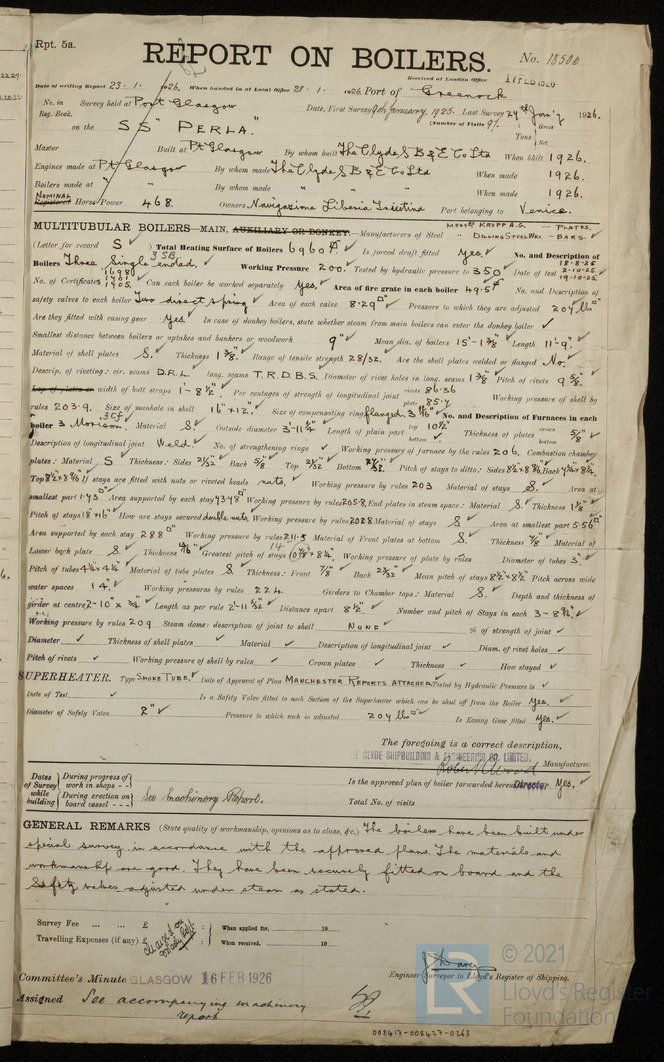 Rpt. 5a.
REPORT ON BOILERS.
No. 18506
Received at London Office 17 FEB 1926
Date of writing Report 23 · 1 · 1926. When handed in at Local Office 28 · 1 · 1926 Port of Greenock
No. in Survey held at Port Glasgow Date, First Survey 9th January, 1925. Last Survey 27th Jan'y 1926.
Reg. Book. (Number of Visits 91.
on the SS "PERLA." Tons { Gross Net
Master Built at Pt Glasgow By whom built The Clyde S B & E Co Ltd When built 1926.
Engines made at Pt Glasgow By whom made The Clyde S B & E Co Ltd When made 1926.
Boilers made at " " By whom made " " When made 1926.
NOMINAL
Registered Horse Power 468. Owners Navigazione Liberia Triestina Port belonging to Venice.
MULTITUBULAR BOILERS—MAIN, AUXILIARY OR DONKEY.—Manufacturers of Steel MESSRS KRUPP A.G. - PLATES.
" DILLING STEEL WKS. - BARS.
(Letter for record S) Total Heating Surface of Boilers 6960 Is forced draft fitted Yes. No. and Description of
Boilers Three Single ended. 3 SB. Working Pressure 200. Tested by hydraulic pressure to 350 Date of test 18-8-25 2-10-25 19-10-25
No. of Certificates 1698 1701 1705. Can each boiler be worked separately Yes. Area of fire grate in each boiler 49.5 No. and Description of
safety valves to each boiler Two direct spring Area of each valve 8.29" Pressure to which they are adjusted 204 lbs
Are they fitted with easing gear Yes. In case of donkey boilers, state whether steam from main boilers can enter the donkey boiler ✓
Smallest distance between boilers or uptakes and bunkers or woodwork 9" Mean dia. of boilers 15'-1 3/8" Length 11'-9".
Material of shell plates S. Thickness 1 3/8". Range of tensile strength 28/32. Are the shell plates welded or flanged No.
Descrip. of riveting: cir. seams D.R.L. long. seams T.R.D.B.S. Diameter of rivet holes in long. seams 1 3/8 Pitch of rivets 9 5/8.
Lap of plates or width of butt straps 1'-8 1/2". Per centages of strength of longitudinal joint rivets 86.36 plate 85.7 Working pressure of shell by
rules 203.9. Size of manhole in shell 16"×12". Size of compensating ring flanged. No. and Description of Furnaces in each
boiler 3 Morison 3 Cf Material S Outside diameter 3'-11 1/4" Length of plain part top 10 1/2" bottom Thickness of plates crown bottom 5/8"
Description of longitudinal joint Weld. No. of strengthening rings ✓ Working pressure of furnace by the rules 206. Combustion chamber
plates: Material S Thickness: Sides 21/32 Back 5/8 Top 21/32 Bottom Pitch of stays to ditto: Sides Back
Top If stays are fitted with nuts or riveted heads nuts. Working pressure by rules 203 Material of stays S. Area at
smallest part 1.73 Area supported by each stay Working pressure by rules 205.8. End plates in steam space: Material S. Thickness 1 1/8"
Pitch of stays 18"×16" How are stays secured double nuts. Working pressure by rules 202.8. Material of stays S Area at smallest part 5.56
Area supported by each stay 288 Working pressure by rules 211.5 Material of Front plates at bottom S. Thickness 7/8" Material of
Lower back plate S. Thickness Greatest pitch of stays Working pressure of plate by rules Diameter of tubes 3"
Pitch of tubes 4 1/4"×4 1/4" Material of tube plates S. Thickness: Front 7/8" Back 23/32 Mean pitch of stays 8 1/2"×8 1/2" Pitch across wide
water spaces 14". Working pressures by rules 224 Girders to Chamber tops: Material S. Depth and thickness of
girder at centre Length as per rule 2'-11 1/32" Distance apart 8 1/2. Number and pitch of Stays in each
Working pressure by rules 209 Steam dome: description of joint to shell NONE % of strength of joint ✓
Diameter ✓ Thickness of shell plates ✓ Material ✓ Description of longitudinal joint ✓ Diam. of rivet holes ✓
Pitch of rivets ✓ Working pressure of shell by rules ✓ Crown plates ✓ Thickness ✓ How stayed ✓
SUPERHEATER. Type SMOKE TUBE. Date of Approval of Plan MANCHESTER REPORTS ATTACHED Tested by Hydraulic Pressure to ✓
Date of Test ✓ Is a Safety Valve fitted to each Section of the Superheater which can be shut off from the Boiler Yes.
Diameter of Safety Valve 2" Pressure to which each is adjusted 204 lbs Is Easing Gear fitted Yes.
The foregoing is a correct description,
CLYDE SHIPBUILDING & ENGINEERING CO. LIMITED.
Robert Wood Manufacturer.
Director
Dates of Survey while building { During progress of work in shops - - } { During erection on board vessel - - - } See Machinery Report.
Is the approved plan of boiler forwarded herewith Yes.
Total No. of visits
GENERAL REMARKS (State quality of workmanship, opinions as to class, &c.) The boilers have been built under
special survey in accordance with the approved plans. The materials and
workmanship are good. They have been securely fitted on board and the
Safety valves adjusted under steam as stated.
Survey Fee ... ... £ : : When applied for, 19
Travelling Expenses (if any) £ : : When received, 19
charged on
Engineer Surveyor to Lloyd's Register of Shipping.
Committee's Minute GLASGOW 16 FEB 1926
Assigned See accompanying machinery
report
© 2021
Lloyd's Register
Foundation
LR
008417-008427-0263